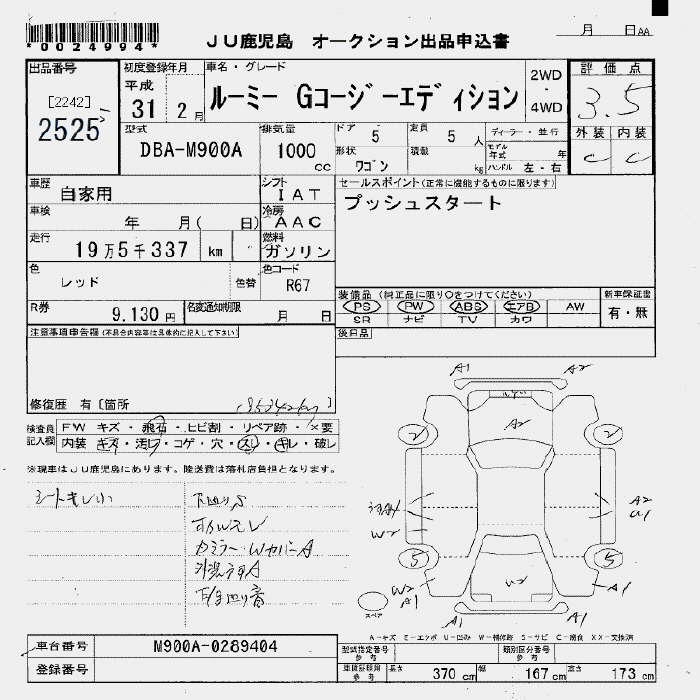 *0024994*
JU鹿児島 オークション出品申込書
月 日 AA
出品番号
[2242]
2525
初度登録年月
平成
31 2 月
車名・グレード
ルーミー Gコージーエディション
2WD
・
4WD
評価点
3.5
外装 内装
C C
型式
DBA-M900A
排気量
1000
cc
ドア 5
定員 5 人
形状 ワゴン
積載 kg
ディーラー・並行
モデル年式 年
ハンドル 左・右
車歴
自家用
シフト
IAT
セールスポイント(正常に機能するものに限ります)
プッシュスタート
車検
年 月( 日)
冷房
AAC
走行
19万5千337 km
燃料
ガソリン
色
レッド
色替
色コード
R67
R券
9,130 円
名変通知期限
月 日
装備品(純正品に限り○をつけてください)
PS PW ABS エアB AW
SR ナビ TV カワ
新車保証書
有・無
注意事項申告欄(不具合内容等は具体的に記入して下さい)
後日品
修復歴 有[箇所
(195342km)]
検査員
記入欄
FW キズ・飛石・ヒビ割・リペア跡・×要
内装・キズ・汚レ・コゲ・穴・スレ・キレ・破レ
※現車はJU鹿児島にあります。陸送費は落札店負担となります。
シートキレ小
下廻りS
A1 A2
A2
2 2
A2
U1
W2
5 5
W2
A1
U2
A1
A1
スペア
A-キズ E-エクボ U-凹み W-補修跡 S-サビ C-腐食 XX-交換済
車台番号
M900A-0289404
登録番号
型式指定番号
参考
類別区分番号
参考
車検証積用
参考
長さ 370 cm 幅 167 cm 高さ 173 cm